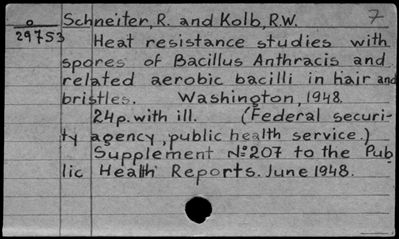 o Schneiter, R. and Kolb, R.W. 7
29753 Heat resistance studies with
spores of Bacillus Anthracis and
related aerobic bacilli in hair and
bristles. Washington, 1948.
24p. with ill. (Federal securi-
ty agency, public health service.)
Supplement No 207 to the Pub
lic Health Reports. June 1948.